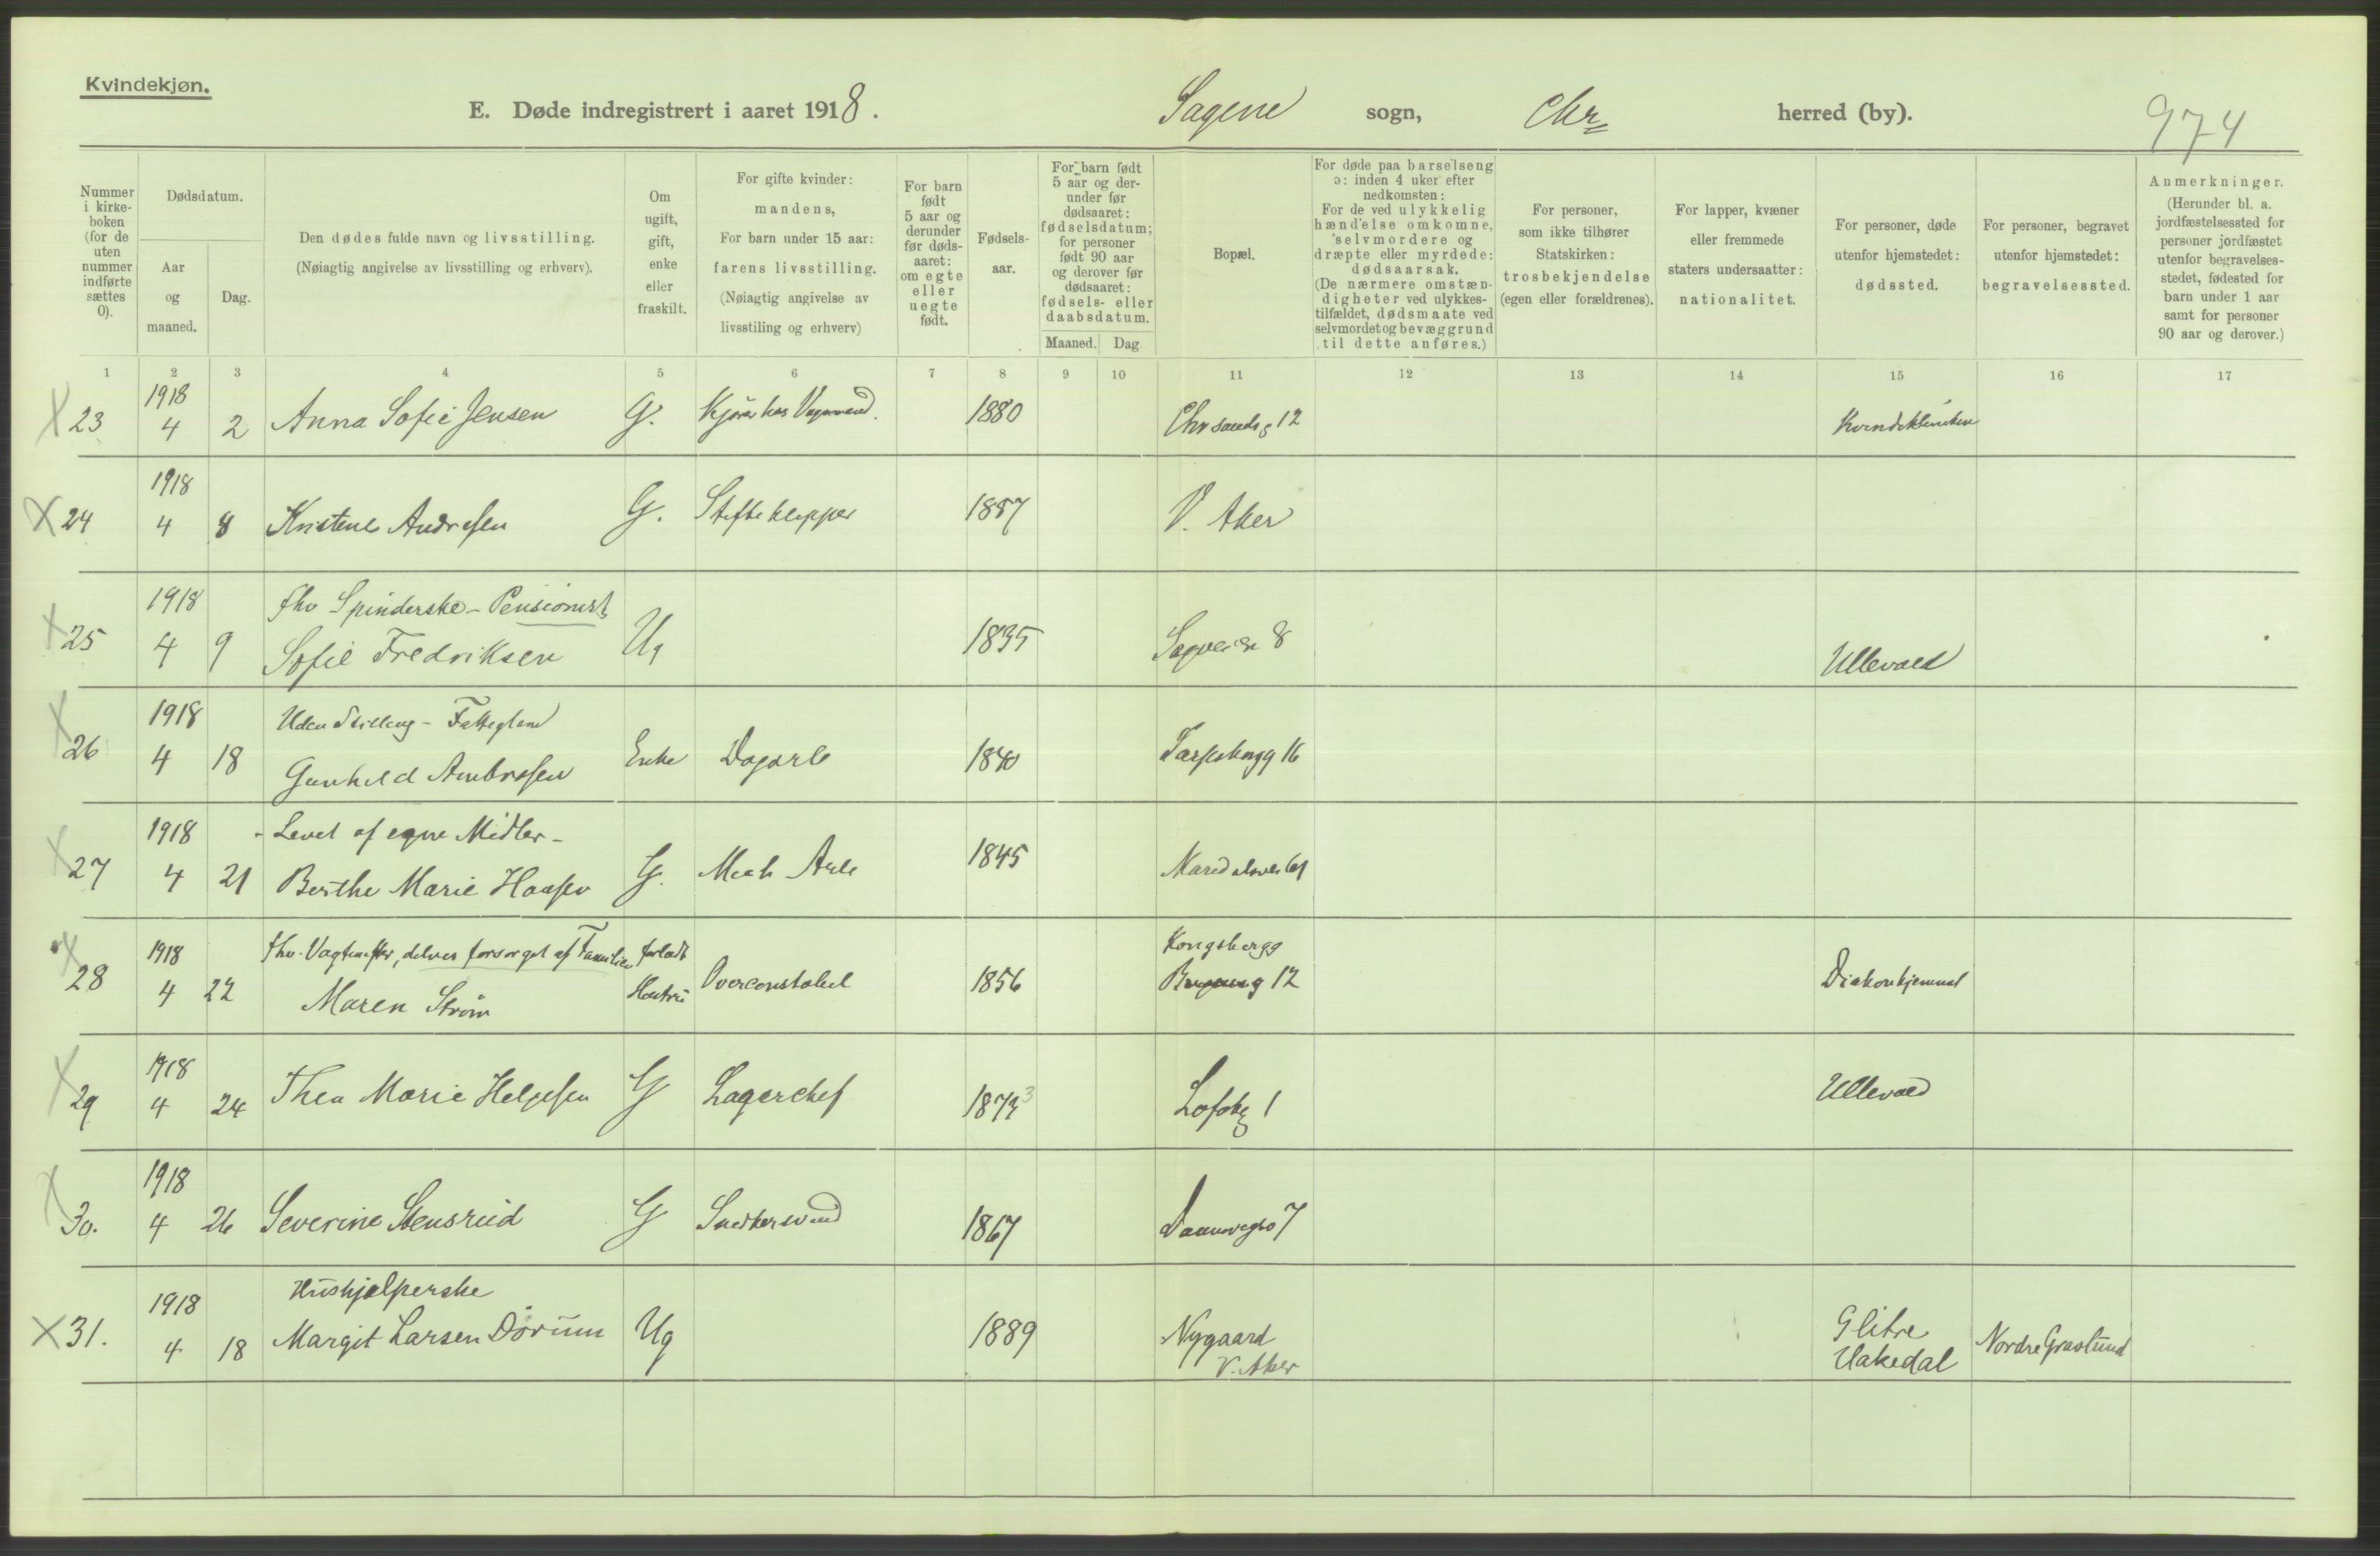 Kvindekjøn.
E. Døde indregistrert i aaret 1918. Sagene sogn, Chr herred (by). 974
Nummer i kirkeboken (for de uten nummer indførte sættes 0).
Dødsdatum.
Aar og maaned.
Dag.
Den dødes fulde navn og livsstilling.
(Nøiagtig angivelse av livsstilling og erhverv).
Om ugift, gift, enke eller fraskilt.
For gifte kvinder: mandens,
For barn under 15 aar: farens livsstilling.
(Nøiagtig angivelse av livsstiling og erhverv)
For barn født 5 aar og derunder før dødsaaret: om egte eller uegte født.
Fødselsaar.
For barn født 5 aar og derunder før dødsaaret: fødselsdatum; for personer født 90 aar og derover før dødsaaret: fødsels- eller daabsdatum.
Maaned. Dag
Bopæl.
For døde paa barselseng ɔ: inden 4 uker efter nedkomsten:
For de ved ulykkelig hændelse omkomne, selvmordere og dræpte eller myrdede: dødsaarsak.
(De nærmere omstændigheter ved ulykkestilfældet, dødsmaate ved selvmordet og bevæggrund til dette anføres.)
For personer, som ikke tilhører Statskirken: trosbekjendelse (egen eller forældrenes).
For lapper, kvæner eller fremmede staters undersaatter: nationalitet.
For personer, døde utenfor hjemstedet: dødssted.
For personer, begravet utenfor hjemstedet: begravelsessted.
Anmerkninger.
(Herunder bl. a. jordfæstelsessted for personer jordfæstet utenfor begravelsesstedet, fødested for barn under 1 aar samt for personer 90 aar og derover.)
1 2 3 4 5 6 7 8 9 10 11 12 13 14 15 16 17
23 1918 4 2 Anna Sofie Jensen G. Kjører hos Vognmand. 1880 Chrsandsg 12 Kvindeklinikken
24 1918 4 8 Kristine Andresen G. Stifteklipper 1887 V. Aker
25 1918 4 9 fhv Spinderske - Pensionist
Sofie Fredriksen Ug 1835 Sagveien 8 Ullevaal
26 1918 4 18 Uden Stilling - Fattiglem
Gunhild Ambrosen Enke Dagarb 1840 16
27 1918 4 21 - Levet af egne Midler -
Berthe Marie Hansen G. Mek Arb 1845 Maridalsvei 61
28 1918 4 22 fhv. Vagtmester, delvis forsørget af Familien
Maren Strøm forladt Hustru Overconstabel 1856 Kongsbergg
12 Diakonhjemmet
29 1918 4 24 Thea Marie Helgesen G Lagerchef 1873 Lofotg 1 Ullevaal
30. 1918 4 26 Severine Stensrud G Snedkersvend 1867 7
31. 1918 4 18 Hushjælperske
Margit Larsen Dørum Ug 1889 Nygaard
V. Aker Glitre
Hakedal Nordre Gravlund